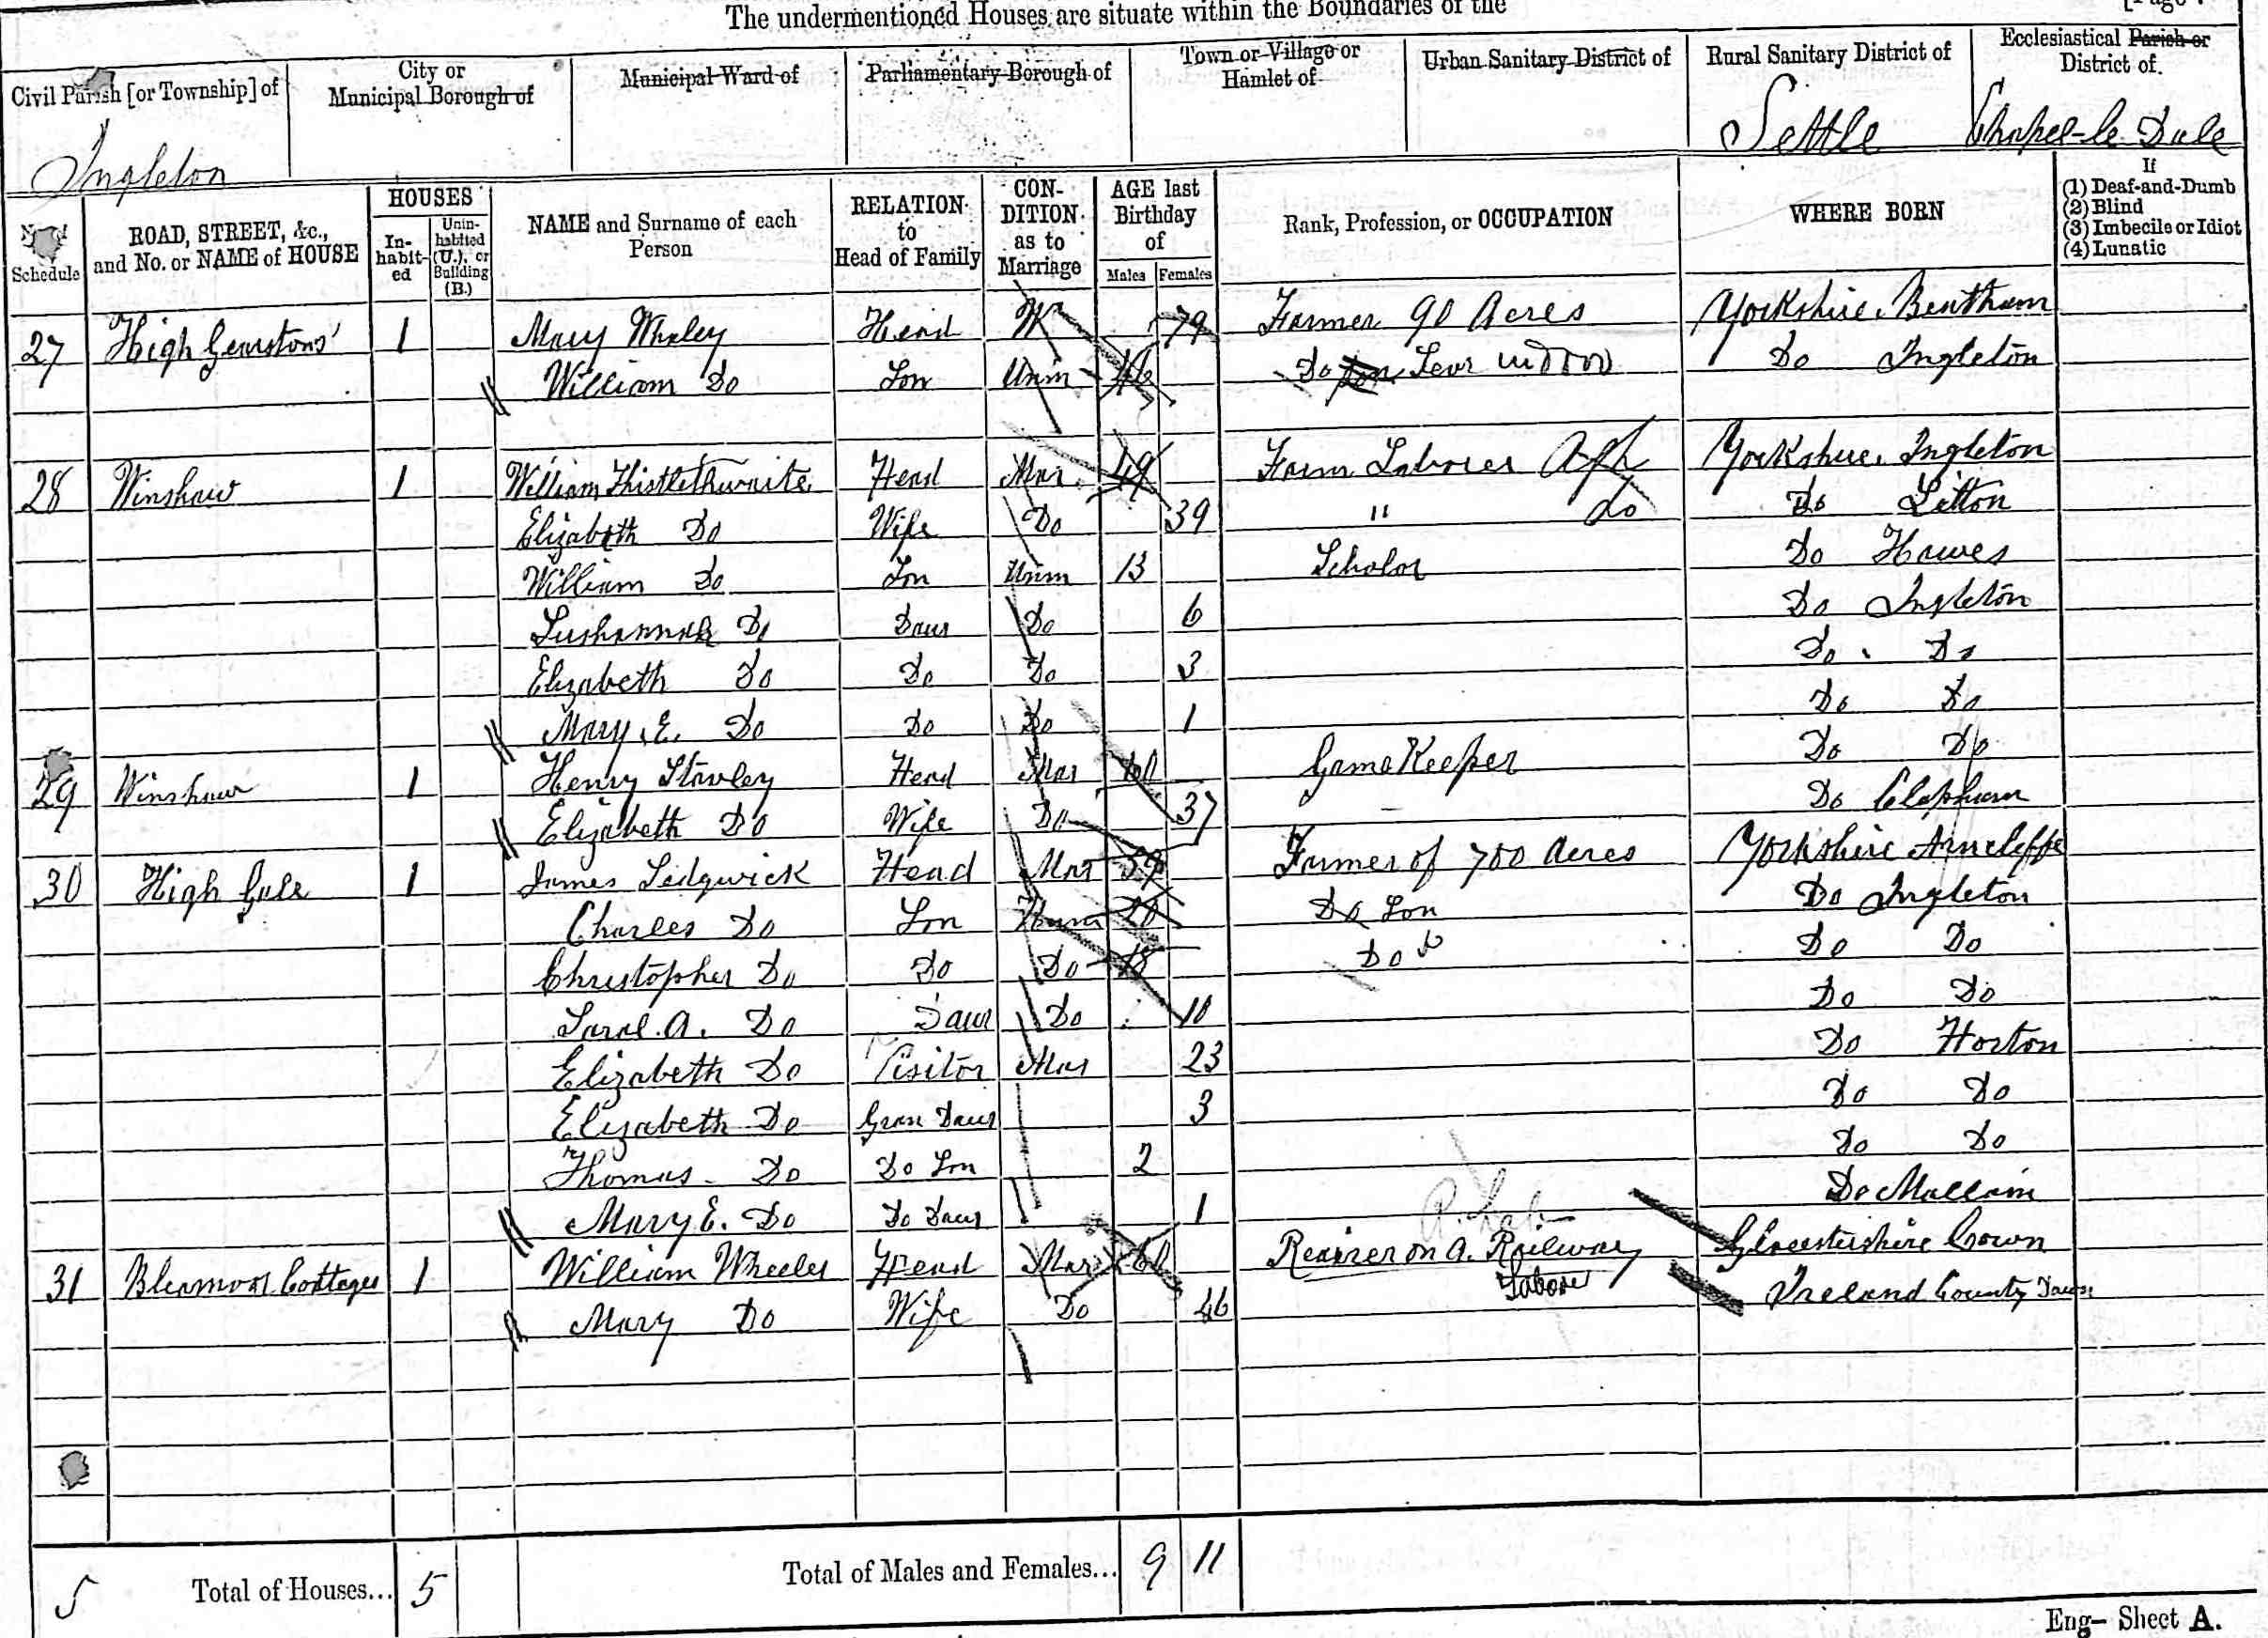 The undermentioned Houses are situate within the Boundaries of the
[Page
Civil Parish [or Township] of
City or Municipal Borough of
Municipal Ward of
Parliamentary Borough of
Town or Village or Hamlet of
Urban Sanitary District of
Rural Sanitary District of
Ecclesiastical Parish or District of
Ingleton
Settle
Chapel-le-Dale
Schedule
ROAD, STREET, &c., and No. or NAME of HOUSE
HOUSES
In-habit-ed
Unin-habited (U.), or Building (B.)
NAME and Surname of each Person
RELATION to Head of Family
CON-DITION as to Marriage
AGE last Birthday of
Males
Females
Rank, Profession, or OCCUPATION
WHERE BORN
If
(1) Deaf-and-Dumb
(2) Blind
(3) Imbecile or Idiot
(4) Lunatic
27 High Gearstons 1 Mary Whaley Head W 79 Farmer 90 Acres Yorkshire. Bentham
William Do Son Unm 46 Do Son Do Ingleton
28 Winshaw 1 William Thistlethwaite Head Mar 49 Farm Laborer Yorkshire. Ingleton
Elizabeth Do Wife Do 39 " do Do Litton
William Do Son Unm 13 Scholar Do Hawes
Sushannah Do Daur Do 6 Do Ingleton
Elizabeth Do Do Do 3 Do Do
Mary. E. Do Do Do 1 Do Do
29 Winshaw 1 Henry Stavley Head Mar Game Keeper Do Do
Elizabeth Do Wife Do 37 Do Clapham
30 High Gale 1 James Sedgwick Head Mar 59 Farmer of 700 Acres Yorkshire Arncliffe
Charles Do Son Unm 20 Do Son Do Ingleton
Christopher Do Do Do 18 Do Do Do
Sarah. A. Do Daur Do 10 Do Do
Elizabeth Do Visitor Mar 23 Do Horton
Elizabeth Do Gran Daur 3 Do Do
Thomas Do Do Son 2 Do Do
Mary E. Do Do Daur 1 Do Mallam
31 Bleamoor Cottages 1 William Wheeler Head Mar 60 on a. Railway Laborer Glocestershire
Mary Do Wife Do 46 Ireland County Down
5 Total of Houses... 5
Total of Males and Females... 9 11
Eng- Sheet A.